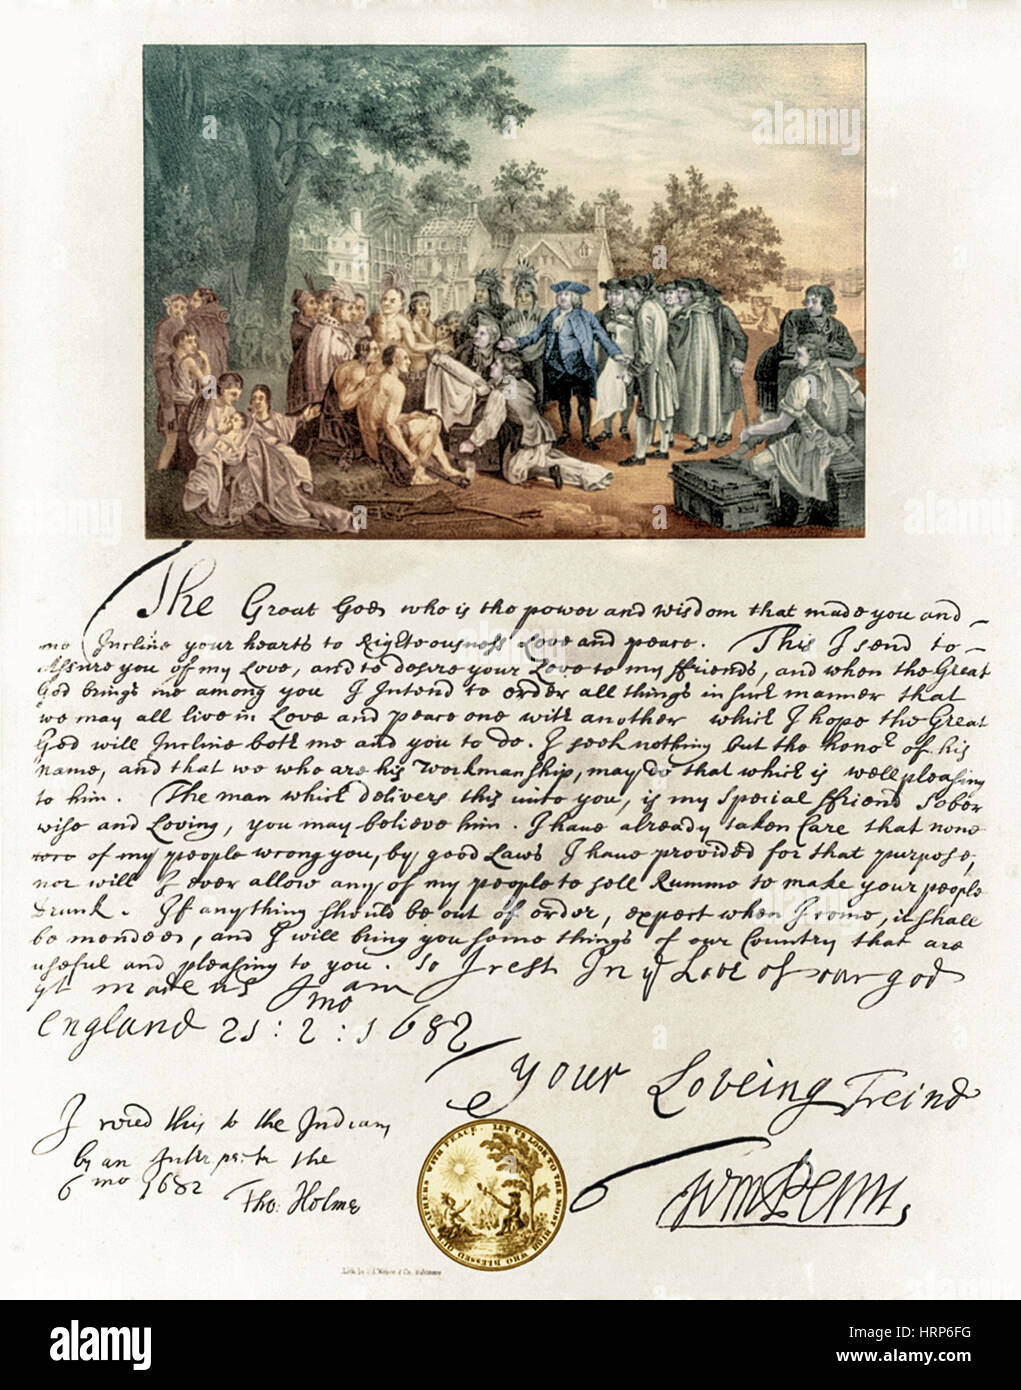 The Great God who is the power and wisdom that made you and
me Incline your hearts to Righteousness Love and peace. This I send to
Assure you of my Love, and to desire your Love to my ffriends, and when the Great
God brings me among you I Intend to order all things in such manner that
we may all live in Love and peace one with another which I hope the Great
God will Incline both me and you to do. I seek nothing but the honor of his
name, and that we who are his Workmanship, may do that which is well pleasing
to him. The man which delivers this unto you, is my Special ffriend Sober
wise and Loving, you may believe him. I have already taken Care that none
of my people wrong you, by good Laws I have provided for that purpose,
nor will I ever allow any of my people to sell Rumme to make your people
Drunk. If anything should be out of order, expect when I come, it shall
be mended, and I will bring you some things of our Country that are
useful and pleasing to you. So I rest In ye Love of our god
yt made us I am
England 21 : 2 mo : 1682
your Loveing Freind
Wm Penn
I read this to the Indians
by an the
6 mo 1682
Tho: Holme
LET US LOOK TO THE MOST HIGH WHO BLESSED OUR FATHERS WITH PEACE.
Lith. by & Co. Baltimore
alamy
Image ID: HRP6FG
www.alamy.com